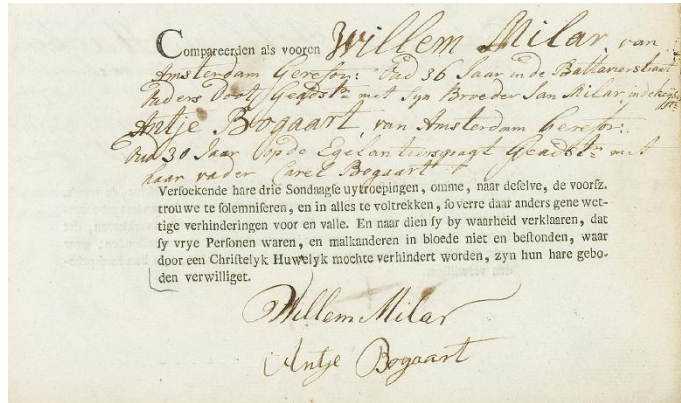 Compareerden als vooren Willem Milar, van
Amsterdam Gerefor: Oud 36 Jaar in de Battavierstraat
Ouders Doot Geadst.r met Syn Broeder Jan Milar in de
Antje Bogaart, van Amsterdam Gerefor:
Oud 30 Jaar op de Egelantiersgragt Geadst.r met
haar vader Carel Bogaart
Versoekende hare drie Sondaagse uytroepingen, omme, naar deselve, de voorsz.
trouwe te solemniseren, en in alles te voltrekken, so verre daar anders gene wet-
tige verhinderingen voor en valle. En naar dien sy by waarheid verklaaren, dat
sy vrye Personen waren, en malkanderen in bloede niet en bestonden, waar
door een Christelyk Huwelyk mochte verhindert worden, zyn hun hare gebo-
den verwilliget.
Willem Milar
Antje Bogaart